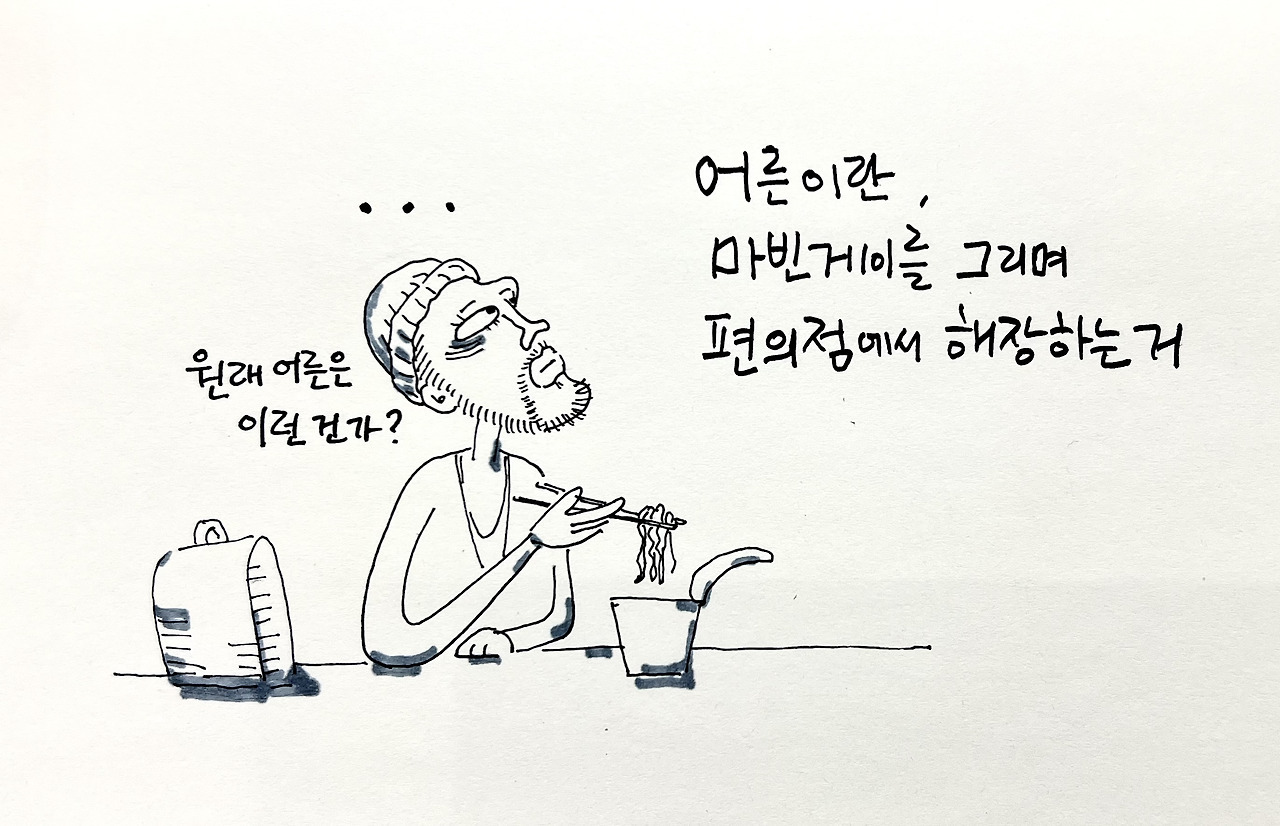 ...
어른이란,
마빈게이를 그리며
편의점에서 해장하는 거
원래 어른은
이런 건가?